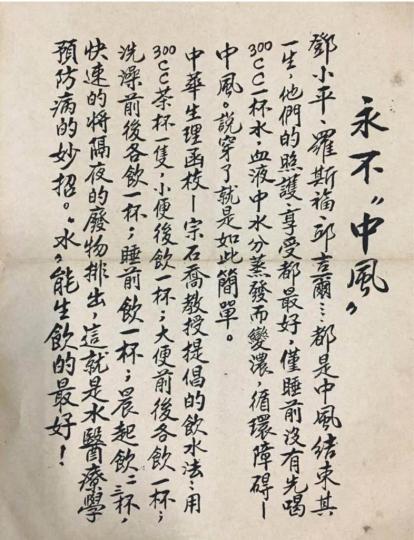 永不"中風"
鄧小平、羅斯福、邱吉爾…都是中風結束其
一生，他們的照護、享受都最好，僅睡前沒有先喝
300CC一杯水，血液中水分蒸發而變濃，循環障碍—
中風。說穿了就是如此簡單。
中華生理函校—宗石喬教授提倡的飲水法：用
300CC茶杯一隻，小便後飲一杯；大便前後各飲一杯；
洗澡前後各飲一杯；睡前飲一杯；晨起飲二三杯，
快速的將隔夜的廢物排出，這就是水醫療學
預防病的妙一招。"水"能生飲的最好！